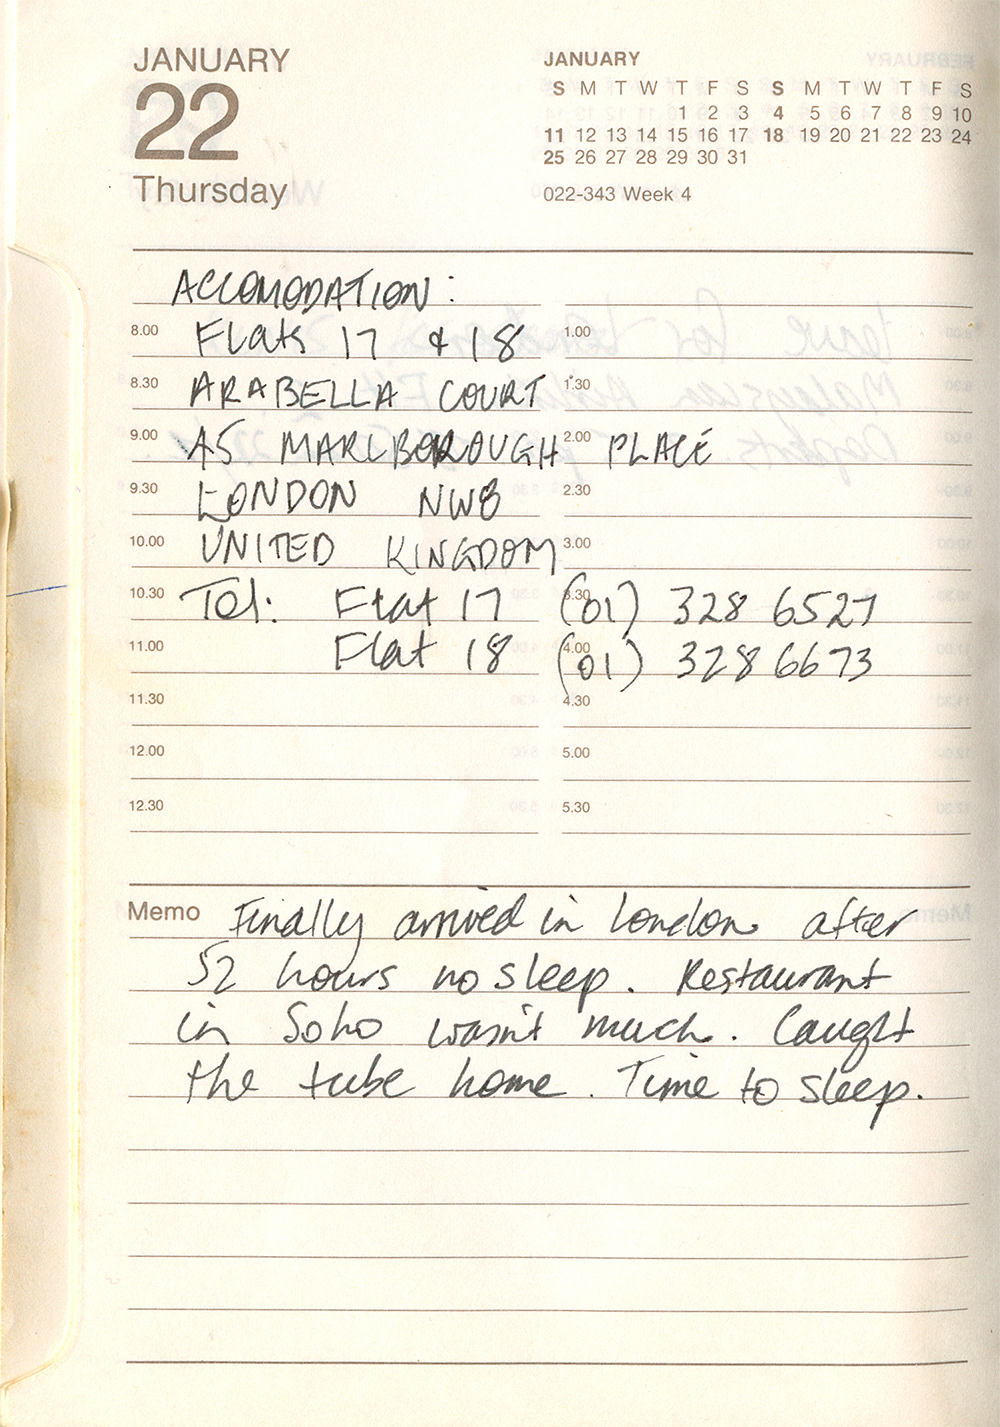 JANUARY
22
Thursday
JANUARY
S M T W T F S S M T W T F S
1 2 3 4 5 6 7 8 9 10
11 12 13 14 15 16 17 18 19 20 21 22 23 24
25 26 27 28 29 30 31
022-343 Week 4
ACCOMODATION:
8.00 Flats 17 & 18 1.00
8.30 ARABELLA COURT 1.30
9.00 45 MARLBOROUGH 2.00 PLACE
9.30 LONDON NW8 2.30
10.00 UNITED KINGDOM 3.00
10.30 Tel: Flat 17 3.30 (01) 328 6527
11.00 Flat 18 4.00 (01) 328 6673
11.30 4.30
12.00 5.00
12.30 5.30
Memo Finally arrived in London after
52 hours no sleep. Restaurant
in Soho wasn't much. Caught
the tube home. Time to sleep.